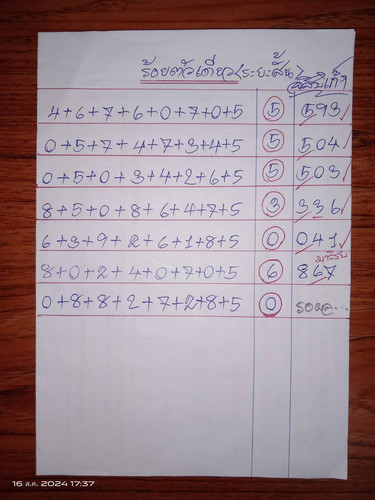 ร้อยตัวเดียว<ระยะสั้น>
4+6+7+6+0+7+0+5 5 593
0+5+7+4+7+3+4+5 5 504
0+5+0+3+4+2+6+5 5 503
8+5+0+8+6+4+7+5 3 336
6+3+9+2+6+1+8+5 0 041
8+0+2+4+0+7+0+5 6 867
0+8+8+2+7+2+8+5 0 รอผล...
16 ส.ค. 2024 17:37